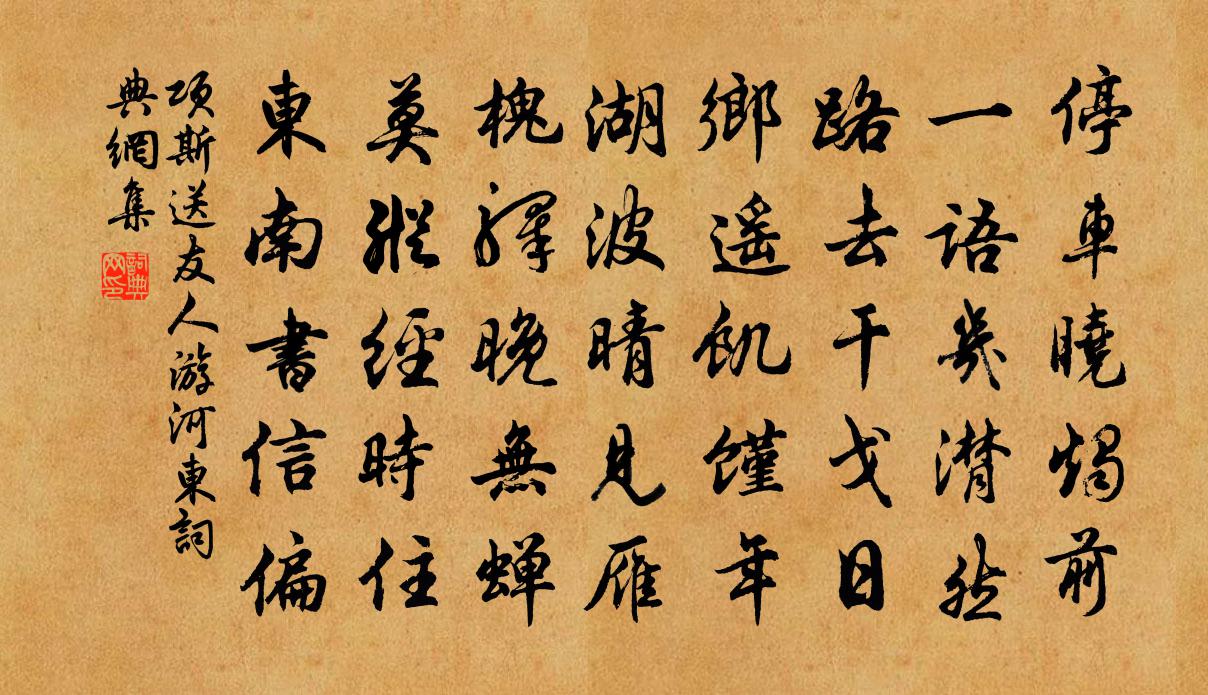 停車曉燭前
一語幾潸然
路去干戈日
鄉遥飢饉年
湖波晴見雁
槐驛晚無蟬
莫縱經時住
東南書信偏
項斯送友人游河東詞
典網集
詞典網印